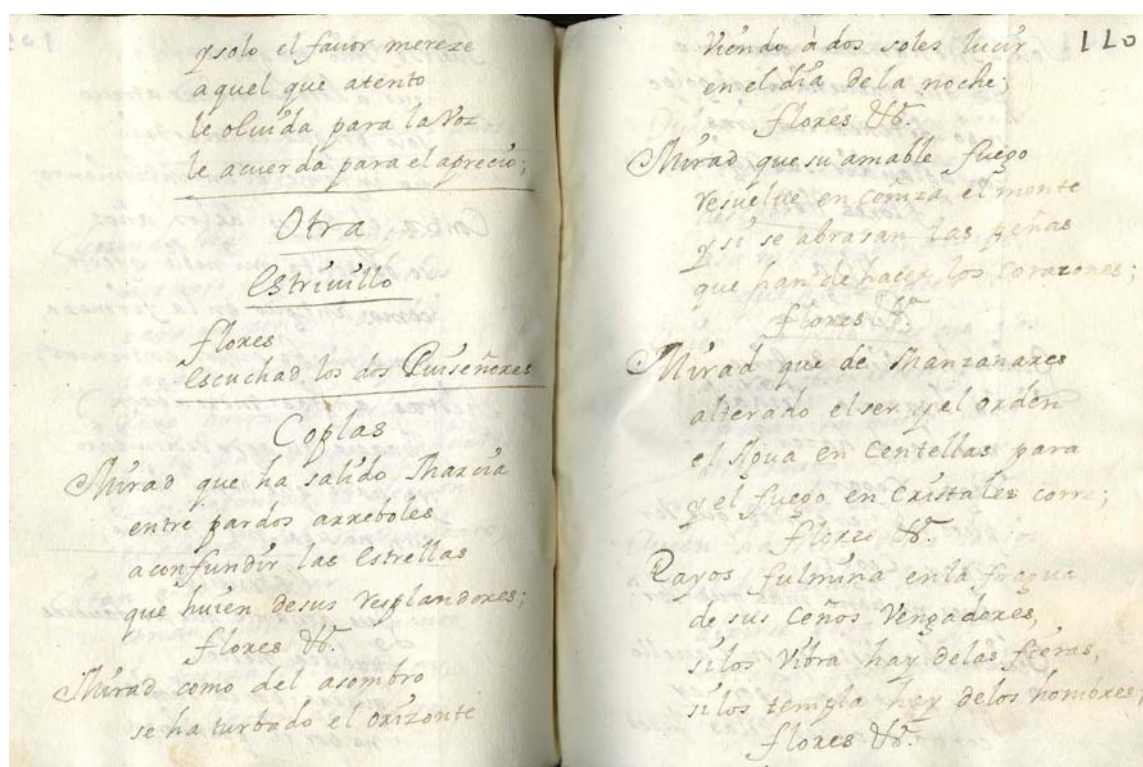 y solo el fauor mereze
aquel que atento
le oluida para la Voz
le acuerda para el aprecio;
Otra
Estriuillo
flores
escuchad los dos Ruiseñores
Coplas
Mirad que ha salido Marcia
entre pardos arreboles
a confundir las estrellas
que huien de sus resplandores;
flores &.
Mirad como del asombro
se ha turbado el orizonte
Viendo à dos soles lucir
en el dia de la noche;
flores &.
Mirad que su amable fuego
resuelue en ceniza el monte
y si se abrasan las peñas
que han de hacer los corazones;
flores &.
Mirad que de Manzanares
alterado el ser y el orden
el Agua en Centellas para
y el fuego en Cristales corre;
flores &.
Rayos fulmina en la fragua
de sus Ceños Vengadores,
si los Vibra hay de las fieras,
si los templa hay de los hombres,
flores &.
110